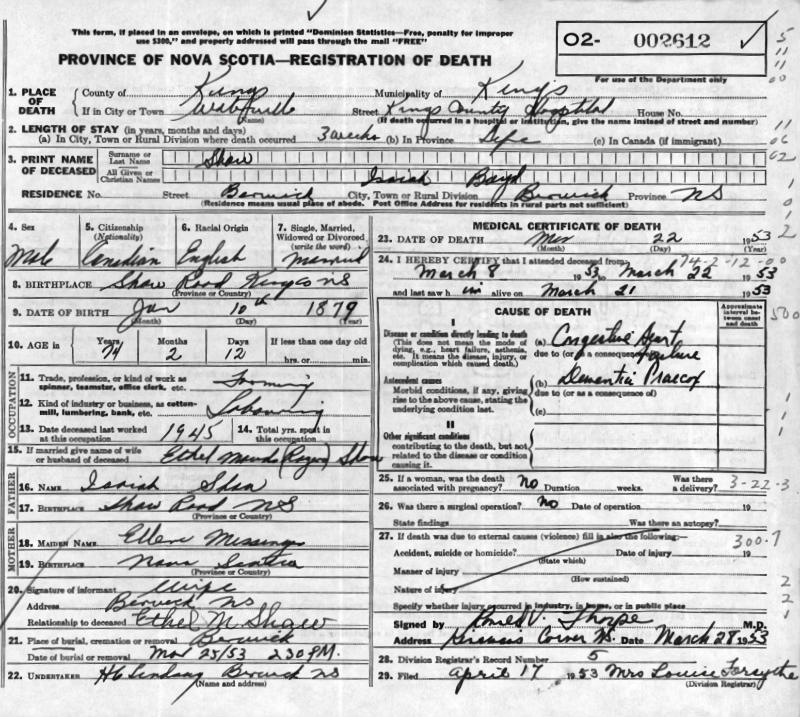 This form, if placed in an envelope, on which is printed "Dominion Statistics—Free, penalty for improper
use $300," and properly addressed will pass through the mail "FREE"
PROVINCE OF NOVA SCOTIA—REGISTRATION OF DEATH
O2- 002612
For use of the Department only
1. PLACE OF DEATH
County of Kings Municipality of Kings
If in City or Town Wolfville Street Kings County Hospital House No.
(Name) (If death occurred in a hospital or institution, give the name instead of street and number)
2. LENGTH OF STAY (in years, months and days)
(a) In City, Town or Rural Division where death occurred 3 weeks (b) In Province Life (c) In Canada (if immigrant)
3. PRINT NAME OF DECEASED
Surname or Last Name Shaw
All Given or Christian Names Isaiah Boyd
RESIDENCE No. Street Berwick City, Town or Rural Division Berwick Province NS
(Residence means usual place of abode. Post Office Address for residents in rural parts not sufficient)
4. Sex Male
5. Citizenship (Nationality) Canadian
6. Racial Origin English
7. Single, Married, Widowed or Divorced (write the word) Married
8. BIRTHPLACE Shaw Road Kings Co NS
(Province or Country)
9. DATE OF BIRTH Jan 10th 1879
(Month) (Day) (Year)
10. AGE in Years 74 Months 2 Days 12 If less than one day old
hrs. or min.
OCCUPATION
11. Trade, profession or kind of work as spinner, teamster, office clerk, etc. Farming
12. Kind of industry or business, as cotton-mill, lumbering, bank, etc. Labouring
13. Date deceased last worked at this occupation 1945 14. Total yrs. spent in this occupation
15. If married give name of wife or husband of deceased Ethel Maude (Rogers) Shaw
FATHER
16. NAME Isaiah Shaw
17. BIRTHPLACE Shaw Road NS
(Province or Country)
MOTHER
18. MAIDEN NAME Ellen
19. BIRTHPLACE Nova Scotia
(Province or Country)
20. Signature of informant Wife
Address Berwick NS
Relationship to deceased Ethel M. Shaw
21. Place of burial, cremation or removal Berwick
Date of burial or removal Mar 25/53 2 30 P.M.
22. UNDERTAKER Berwick NS
(Name and address)
MEDICAL CERTIFICATE OF DEATH
23. DATE OF DEATH Mar 22 1953
(Month) (Day) (Year)
24. I HEREBY CERTIFY that I attended deceased from 174-2-12-00
March 8 1953 to March 22 1953
and last saw him alive on March 21 1953
CAUSE OF DEATH
Approximate interval between onset and death
I
Disease or condition directly leading to death
(This does not mean the mode of dying, e.g., heart failure, asthenia, etc. It means the disease, injury, or complication which caused death.)
(a) Congestive Heart Failure
due to (or as a consequence of)
Antecedent causes
Morbid conditions, if any, giving rise to the above cause, stating the underlying condition last.
(b) Dementia Praecox
due to (or as a consequence of)
(c)
II
Other significant conditions
contributing to the death, but not related to the disease or condition causing it.
25. If a woman, was the death associated with pregnancy? no Duration weeks. Was there a delivery? 3-22-3
26. Was there a surgical operation? no Date of operation 19
State findings Was there an autopsy?
27. If death was due to external causes (violence) fill in also the following:
300.7
Accident, suicide or homicide? Date of injury 19
(State which)
Manner of injury
(How sustained)
Nature of injury
Specify whether injury occurred in industry, in home, or in public place
Signed by V. Thorpe M.D.
Address Corner NS. Date March 28 1953
28. Division Registrar's Record Number 5
29. Filed April 17 1953 Mrs Louise Forsythe
(Division Registrar)